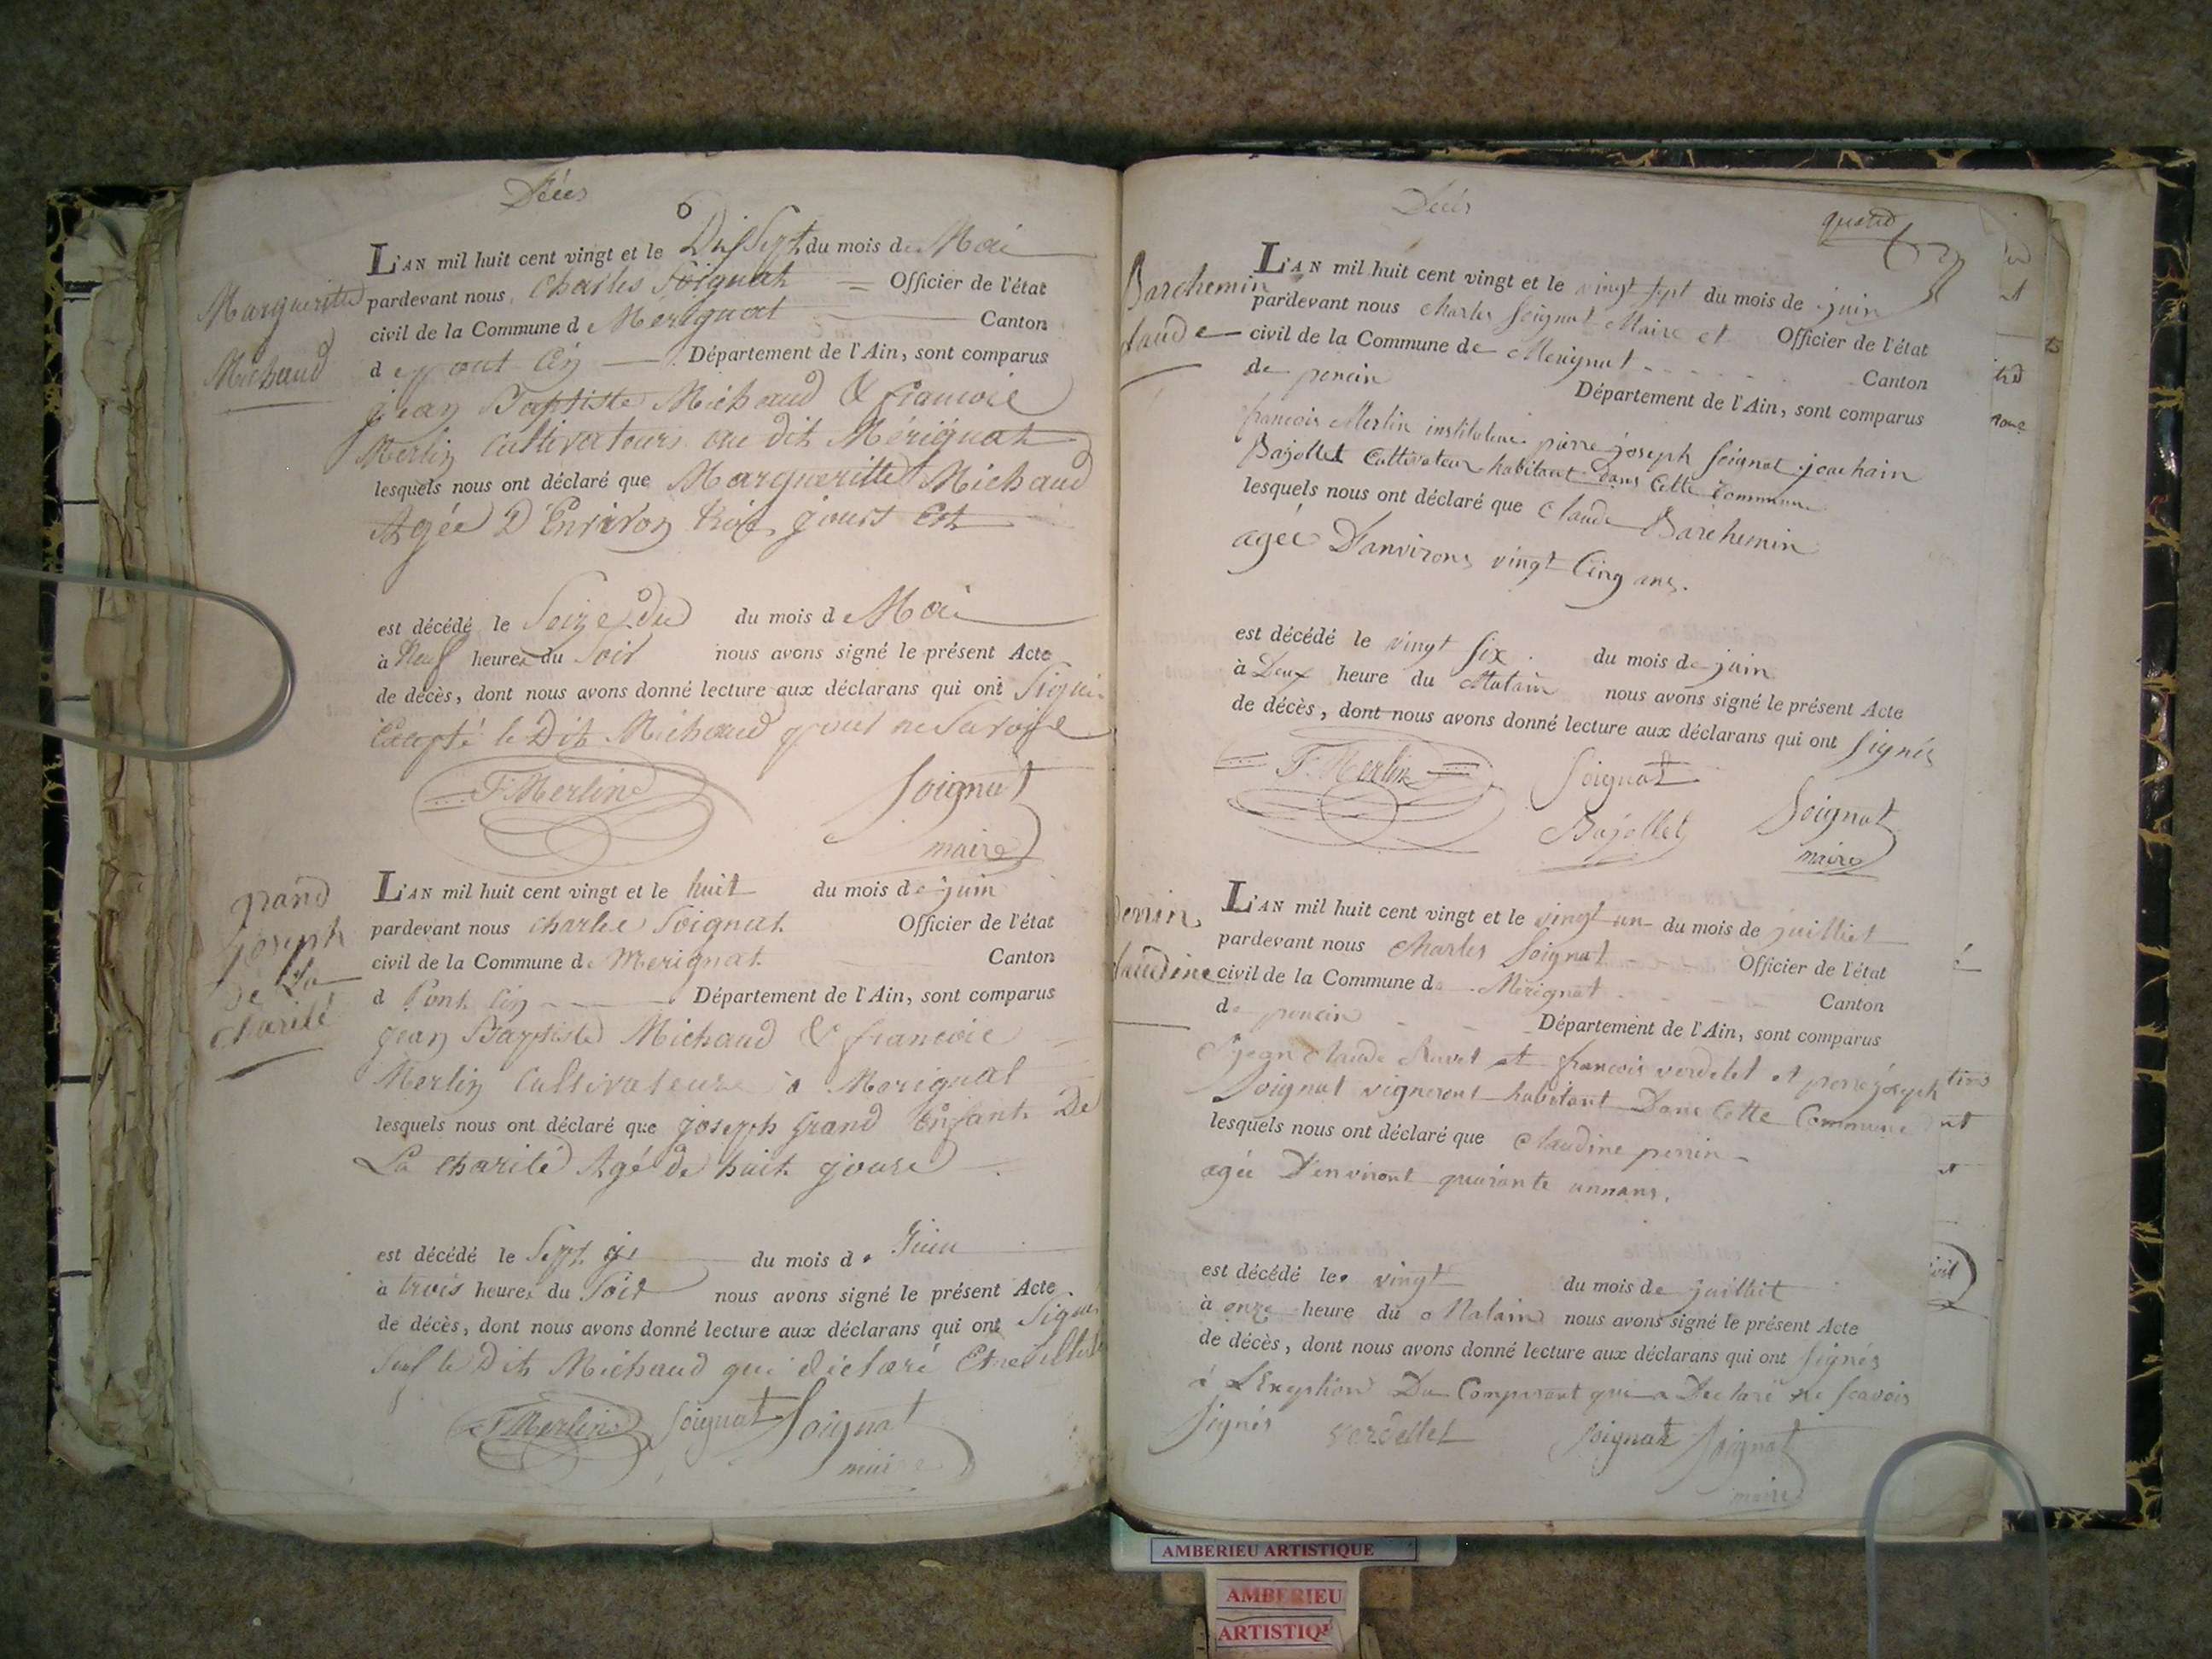 Décès
6
L'AN mil huit cent vingt et le Dix Sept du mois de Mai
pardevant nous Charles Soignat Officier de l'état
civil de la Commune de Mérignat Canton
de pont d'ain Département de l'Ain, sont comparus
jean Baptiste Michaud & francois
Merlin Cultivateurs au dit Mérignat
lesquels nous ont déclaré que Margueritte Michaud
Agée D'Environ trois jours Est
est décédé le Seize du du mois de Mai
à Neuf heures du Soir nous avons signé le présent Acte
de décès, dont nous avons donné lecture aux déclarans qui ont Signé
Excepté le Dit Michaud
F. Merlin Soignat
maire
Margueritte
Michaud
L'AN mil huit cent vingt et le huit du mois de juin
pardevant nous Charles Soignat Officier de l'état
civil de la Commune de Merignat Canton
d Département de l'Ain, sont comparus
jean Baptiste Michaud & francois
Merlin Cultivateurs à Merignat
lesquels nous ont déclaré que joseph Grand Enfant De
La Charité Agé de huit jours
est décédé le Sept du mois de Juin
à trois heures du Soir nous avons signé le présent Acte
de décès, dont nous avons donné lecture aux déclarans qui ont Signé
le Dit Michaud qui
F Merlin Soignat Soignat
maire
grand
joseph
De La
charité
Décès
L'AN mil huit cent vingt et le vingt sept du mois de juin
pardevant nous Charles Soignat Maire et Officier de l'état
civil de la Commune de Merignat Canton
de poncin Département de l'Ain, sont comparus
francois Merlin instituteur pierre joseph Soignat joachain
Bajollet Cultivateur habitant dans Cette Commune
lesquels nous ont déclaré que Claude Barchemin
agée D'anvirons vingt Cinq ans.
est décédé le vingt six du mois de juin
à Deux heure du Matain nous avons signé le présent Acte
de décès, dont nous avons donné lecture aux déclarans qui ont Signés
F. Merlin Soignat
Bajollet Soignat
maire
Barchemin
Claude
L'AN mil huit cent vingt et le vingt un du mois de juilliet
pardevant nous Charles Soignat Officier de l'état
civil de la Commune de Mérignat Canton
de poncin Département de l'Ain, sont comparus
jean Claude Ravet et francois verdelet et pierre joseph
Soignat vigneront habitant Dans Cette Commune
lesquels nous ont déclaré que Claudine perrin
agée D'environt quarante unnans.
est décédé le vingt du mois de juilliet
à onze heure du Matain nous avons signé le présent Acte
de décès, dont nous avons donné lecture aux déclarans qui ont Signés
à L'Exeption Du Comparant qui a Declaré ne scavois
Signés verdellet Soignat Soignat
maire
perrin
Claudine
AMBERIEU ARTISTIQUE
AMBERIEU
ARTISTIQUE